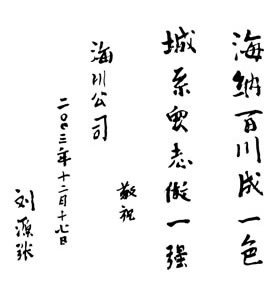 海纳百川成一色
城系众志做一强
敬祝
海川公司
二00三年十二月十七日
刘源张